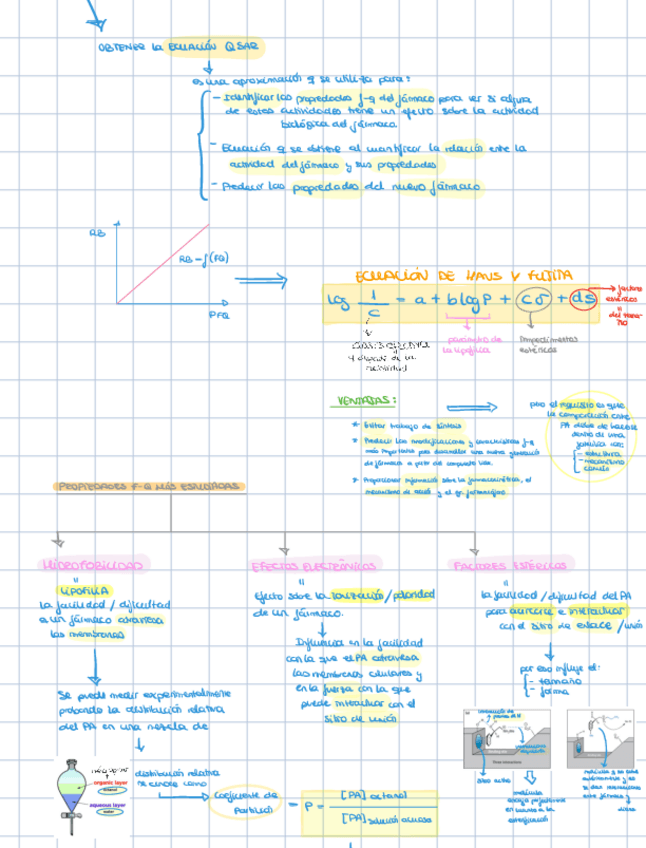 OBTENER la ECUACIÓN QSAR
es una aproximación q se utiliza para:
- Identificar las propiedades f-q del fármaco para ver si alguna
de estas actividades tiene un efecto sobre la actividad
biológica del fármaco
- Ecuación q se obtiene al cuantificar la relación entre la
actividad del fármaco y sus propiedades
- Predecir las propiedades del nuevo fármaco
RB
RB = f(FQ)
PFQ
ECUACIÓN DE HANS Y FUJITA
log 1/C = a + b log P + cσ + ds
factores
estéricos
=
del tama-
ño
parámetro de
la lipofilia
Impedimentos
estéricos
actividad
VENTAJAS:
* Evitar trabajo de síntesis
* Predecir las modificaciones y características f-q
más importantes para desarrollar una nueva generación
de fármacos a partir del compuesto
* Proporcionar información sobre la farmacocinética, el
mecanismo de acción y el gr. farmacóforo
pero el requisito es que
la comparación entre
PA debe de hacerse
dentro de una
familia con:
- estructura
- mecanismo
común
PROPIEDADES F-Q MÁS ESTUDIADAS
HIDROFOBICIDAD
"
LIPOFILIA
la facilidad / dificultad
a un fármaco atraviesa
las membranas
Se puede medir experimentalmente
probando la distribución relativa
del PA en una mezcla de
organic layer
aqueous layer
distribución relativa
se conoce como
Coeficiente de
Partición
= P = [PA] octanol / [PA] solución acuosa
EFECTOS ELECTRÓNICOS
"
Efecto sobre la ionización / polaridad
de un fármaco.
Influencia en la facilidad
con la que el PA atraviesa
las membranas celulares y
en la fuerza con la que
puede interactuar con el
sitio de unión
FACTORES ESTÉRICOS
"
la facilidad / dificultad del PA
para acercarse e interactuar
con el sitio de enlace / unión
por eso influye el:
- tamaño
- forma
sitio activo
molécula
encaja perfectamente
en cuanto a la